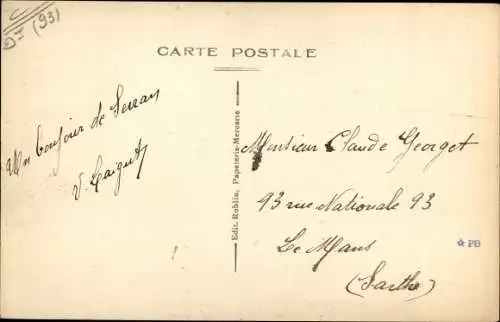 (93)
CARTE POSTALE
Un bonjour de Sevran
V. Laigut
Edit. Roblin, Papeterie-Mercerie
Monsieur Claude Georget
93 rue Nationale 93
Le Mans
(Sarthe)
PB